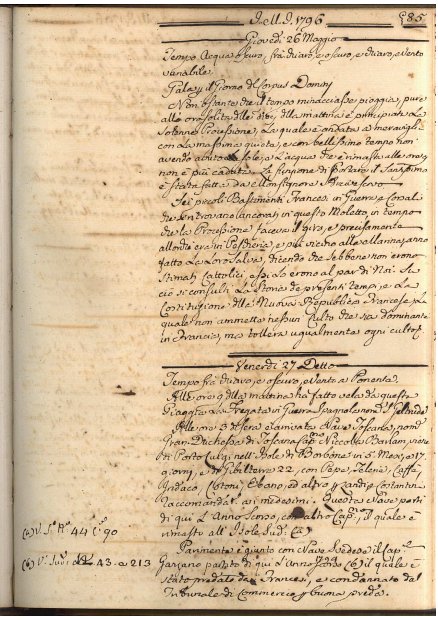 Dell' A. 1796
585
Giovedì 26 Maggio
Tempo Acqua oscuro, fra chiaro, e oscuro, e chiaro, e vento
variabile.
Gala p. il Giorno del Corpus Domini
Non ostante che il tempo minacciasse pioggia, pure
alle ore solite delle dieci della mattina è principiata la
solenne Processione, la quale è andata a meraviglia
con la massima quiete, e con bellissimo tempo non
avendo avuto il sole, e l'acqua che è rimasta alle ore
non è più caduta. La funzione di portare il Santissimo
è stata fatta da Monsignore Arcivescovo
Sei piccoli Bastimenti Francesi in Guerra, e Corsali
che si trovano ancorati in questo Moletto, in tempo
che la Processione faceva il giro, e precisamente
allorché era in Pescheria, e più vicino alle all anno
fatto la Loro Salva, dicendo che sebbene non erono
stimati Cattolici, essi lo erono al par di Noi. Su
ciò si consulti la Storia de presenti tempi, e la
Costituzione della Nuova Repubblica Francese, la
quale non ammette nessun Culto che sia dominante
in Francia, ma tollera ugualmente ogni culto
Venerdì 27 Detto
Tempo fra chiaro, e oscuro, e vento a Ponente
All' ore 9 della mattina ha fatto vela da questa
Spiaggia la Fregata in Guerra Spagnola nom.
All' ore 3 di sera è arrivata Nave Toscana, nom.
Gran-Duchessa di Toscana Cap. Niccola viene
di Porto Luigi nell' Isole di Borbone in 5 Mesi, e 17
giorni, e da Gibilterra 22, con Pepe, Telerie, Caffè,
Indaco, Cotoni, Ebano, ed altro
Raccomandata ai medesimi. Questa Nave partì
di qui l'Anno Scorso, con altro Cap., il quale è
rimasto all' Isole Sud. (a)
(a) V. 44 90
Parimente è giunto con Nave Svedese il Cap.
partito di qui l'Anno scorso (b) il quale è
(b) V. 43. a 213
stato predato da Francesi, e condannato dal
Tribunale di Commercio p. buona preda.